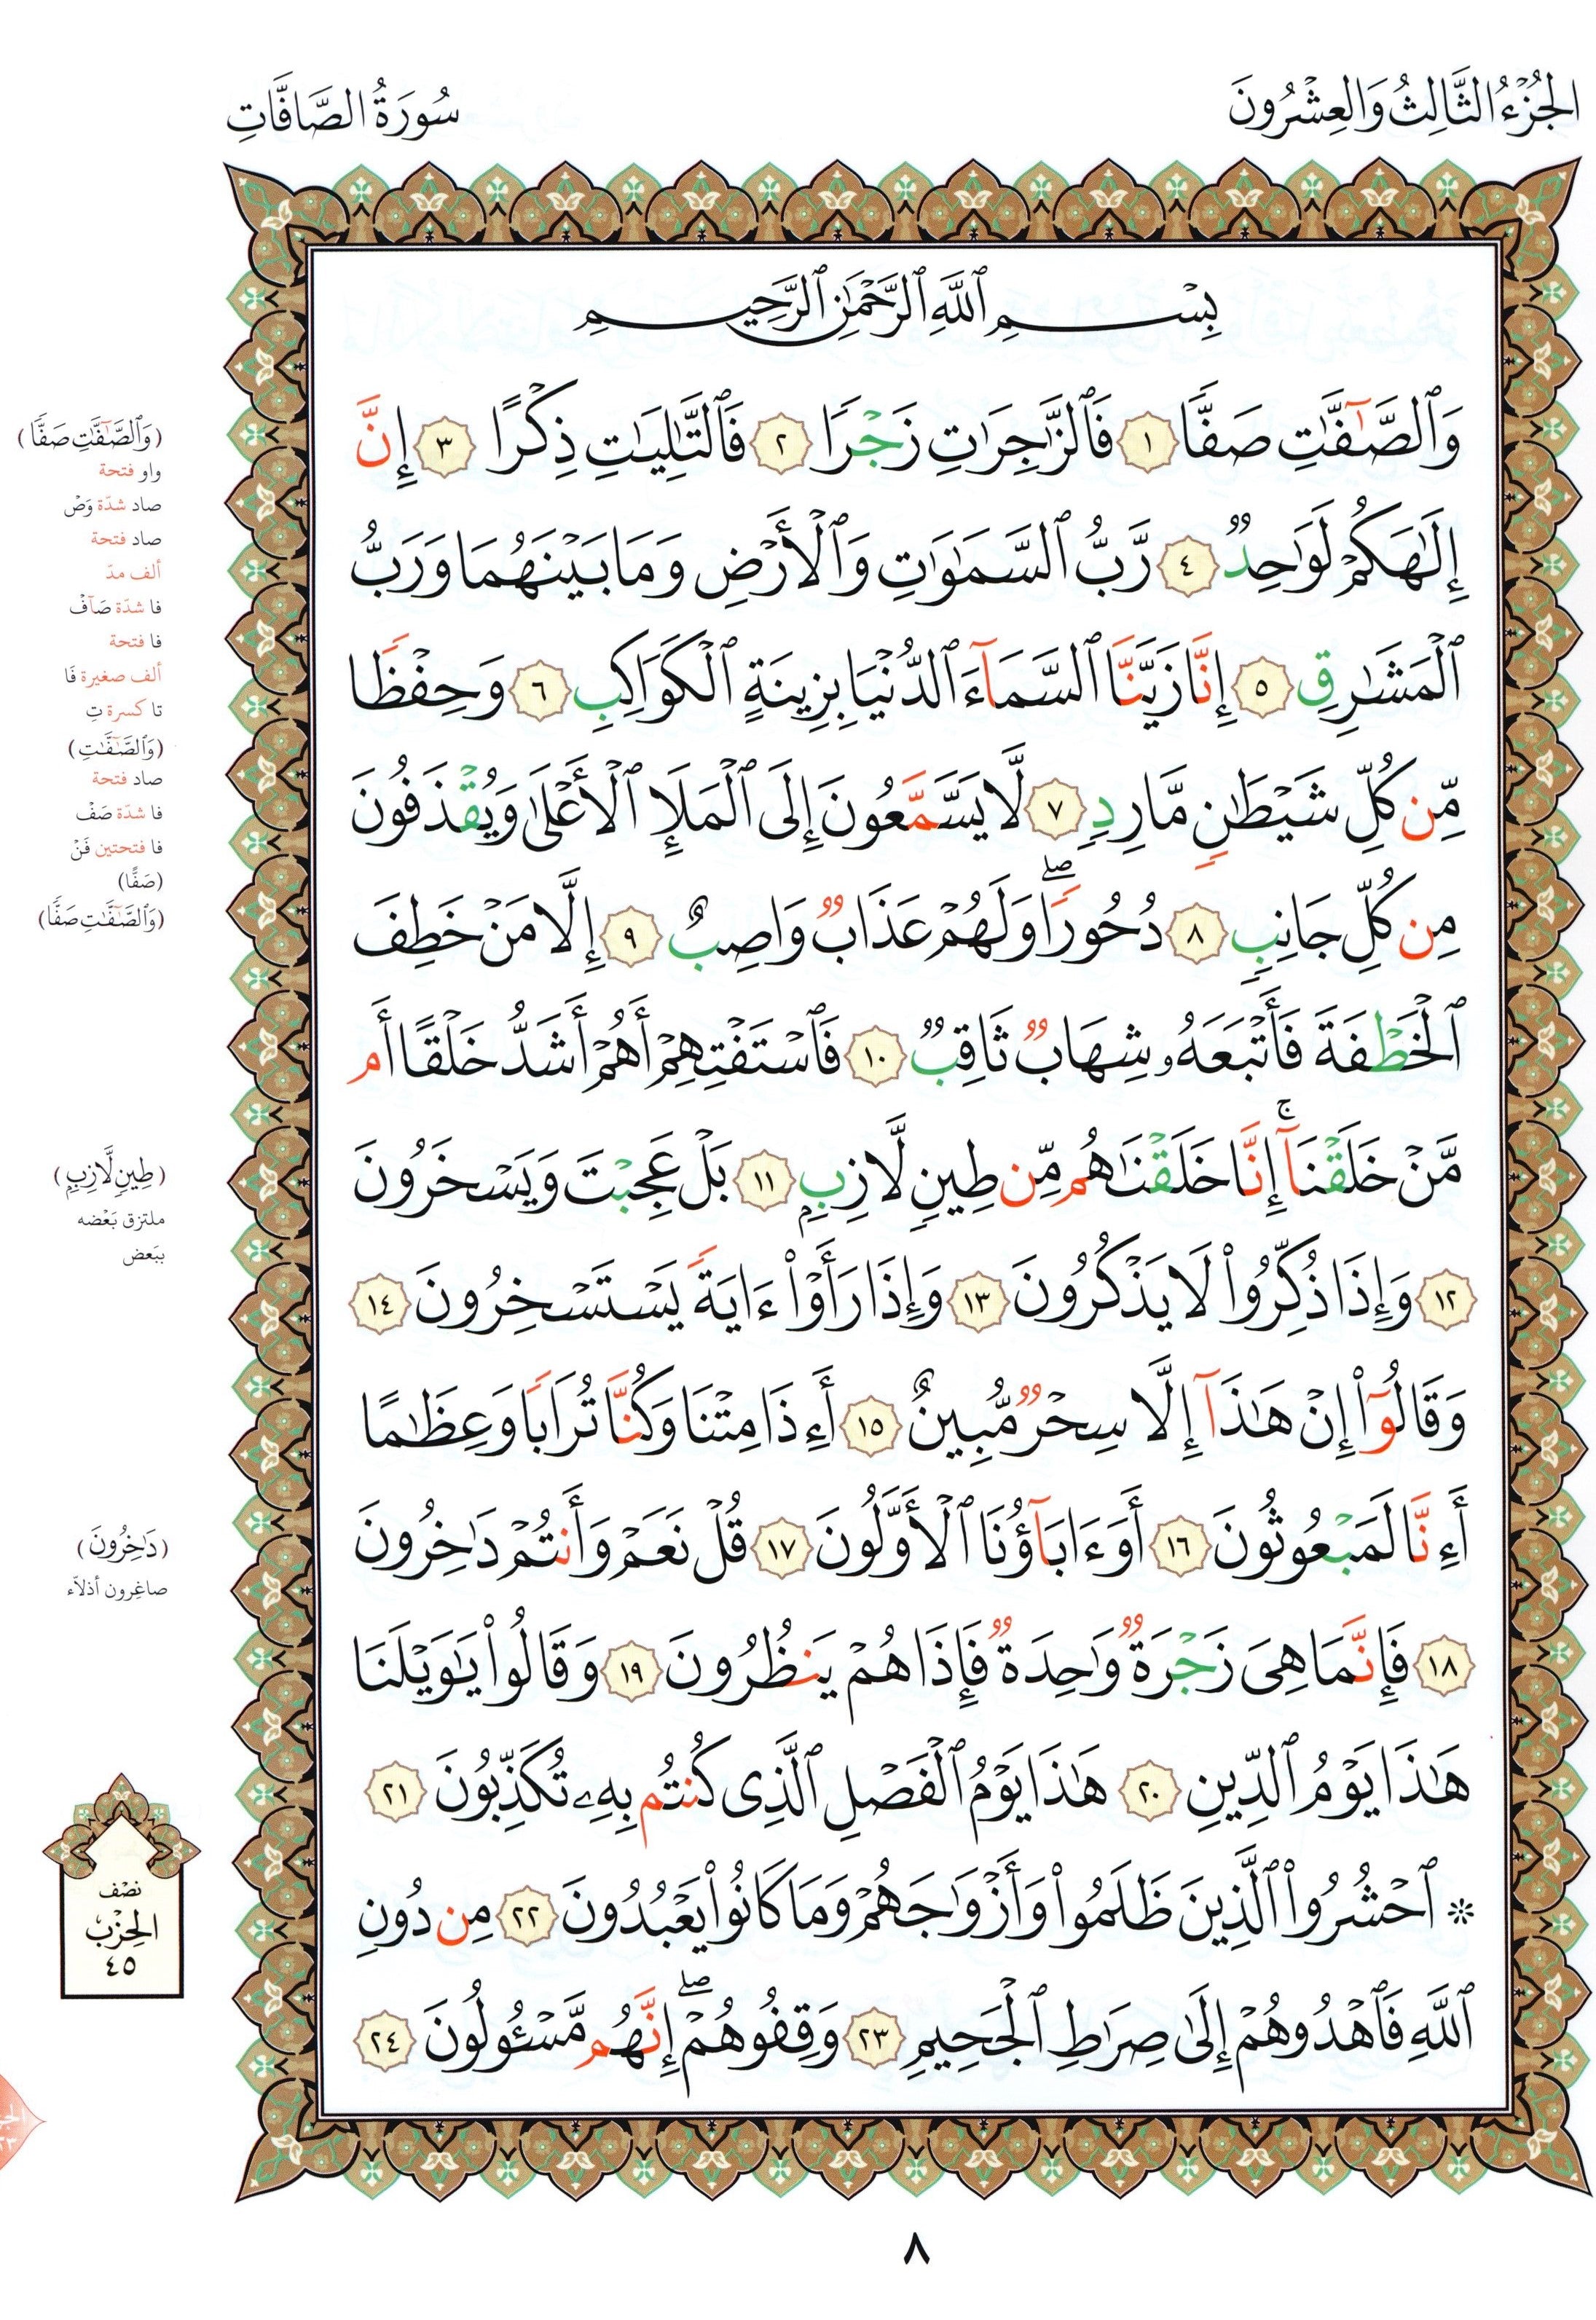 الجُزْءُ الثَّالِثُ وَالعِشْرُونَ
سُورَةُ الصَّافَّاتِ
بِسْمِ ٱللَّهِ ٱلرَّحْمَٰنِ ٱلرَّحِيمِ
وَٱلصَّٰٓفَّٰتِ صَفًّا ١ فَٱلزَّٰجِرَٰتِ زَجْرًا ٢ فَٱلتَّٰلِيَٰتِ ذِكْرًا ٣ إِنَّ
إِلَٰهَكُمْ لَوَٰحِدٌ ٤ رَّبُّ ٱلسَّمَٰوَٰتِ وَٱلْأَرْضِ وَمَا بَيْنَهُمَا وَرَبُّ
ٱلْمَشَٰرِقِ ٥ إِنَّا زَيَّنَّا ٱلسَّمَآءَ ٱلدُّنْيَا بِزِينَةٍ ٱلْكَوَاكِبِ ٦ وَحِفْظًا
مِّن كُلِّ شَيْطَٰنٍ مَّارِدٍ ٧ لَّا يَسَّمَّعُونَ إِلَى ٱلْمَلَإِ ٱلْأَعْلَىٰ وَيُقْذَفُونَ
مِن كُلِّ جَانِبٍ ٨ دُحُورًا ۖ وَلَهُمْ عَذَابٌ وَاصِبٌ ٩ إِلَّا مَنْ خَطِفَ
ٱلْخَطْفَةَ فَأَتْبَعَهُۥ شِهَابٌ ثَاقِبٌ ١٠ فَٱسْتَفْتِهِمْ أَهُمْ أَشَدُّ خَلْقًا أَم
مَّنْ خَلَقْنَآ ۚ إِنَّا خَلَقْنَٰهُم مِّن طِينٍ لَّازِبٍ ١١ بَلْ عَجِبْتَ وَيَسْخَرُونَ
١٢ وَإِذَا ذُكِّرُوا۟ لَا يَذْكُرُونَ ١٣ وَإِذَا رَأَوْا۟ ءَايَةً يَسْتَسْخِرُونَ ١٤
وَقَالُوٓا۟ إِنْ هَٰذَآ إِلَّا سِحْرٌ مُّبِينٌ ١٥ أَءِذَا مِتْنَا وَكُنَّا تُرَابًا وَعِظَٰمًا
أَءِنَّا لَمَبْعُوثُونَ ١٦ أَوَءَابَآؤُنَا ٱلْأَوَّلُونَ ١٧ قُلْ نَعَمْ وَأَنتُمْ دَٰخِرُونَ
١٨ فَإِنَّمَا هِىَ زَجْرَةٌ وَٰحِدَةٌ فَإِذَا هُمْ يَنظُرُونَ ١٩ وَقَالُوا۟ يَٰوَيْلَنَا
هَٰذَا يَوْمُ ٱلدِّينِ ٢٠ هَٰذَا يَوْمُ ٱلْفَصْلِ ٱلَّذِى كُنتُم بِهِۦ تُكَذِّبُونَ ٢١
* ٱحْشُرُوا۟ ٱلَّذِينَ ظَلَمُوا۟ وَأَزْوَٰجَهُمْ وَمَا كَانُوا۟ يَعْبُدُونَ ٢٢ مِن دُونِ
ٱللَّهِ فَٱهْدُوهُمْ إِلَىٰ صِرَٰطِ ٱلْجَحِيمِ ٢٣ وَقِفُوهُمْ ۖ إِنَّهُم مَّسْـُٔولُونَ ٢٤
(وَٱلصَّٰٓفَّٰتِ صَفًّا)
واو فتحة
صاد شدّة وَصْ
صاد فتحة
ألف مدّ
فا شدّة صَآفْ
فا فتحة
ألف صغيرة فَا
تا كسرة تِ
(وَٱلصَّٰٓفَّٰتِ)
صاد فتحة
فا شدّة صَفْ
فا فتحتين فَنْ
(صَفًّا)
(وَٱلصَّٰٓفَّٰتِ صَفًّا)
(طِينٍ لَّازِبٍ)
ملتزق بَعْضه
ببَعض
(دَٰخِرُونَ)
صاغِرون أذلاّء
نصْف
الحِزْبْ
٤٥
٨